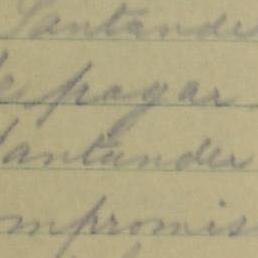 Santande
de pagar
Santander
mpromis